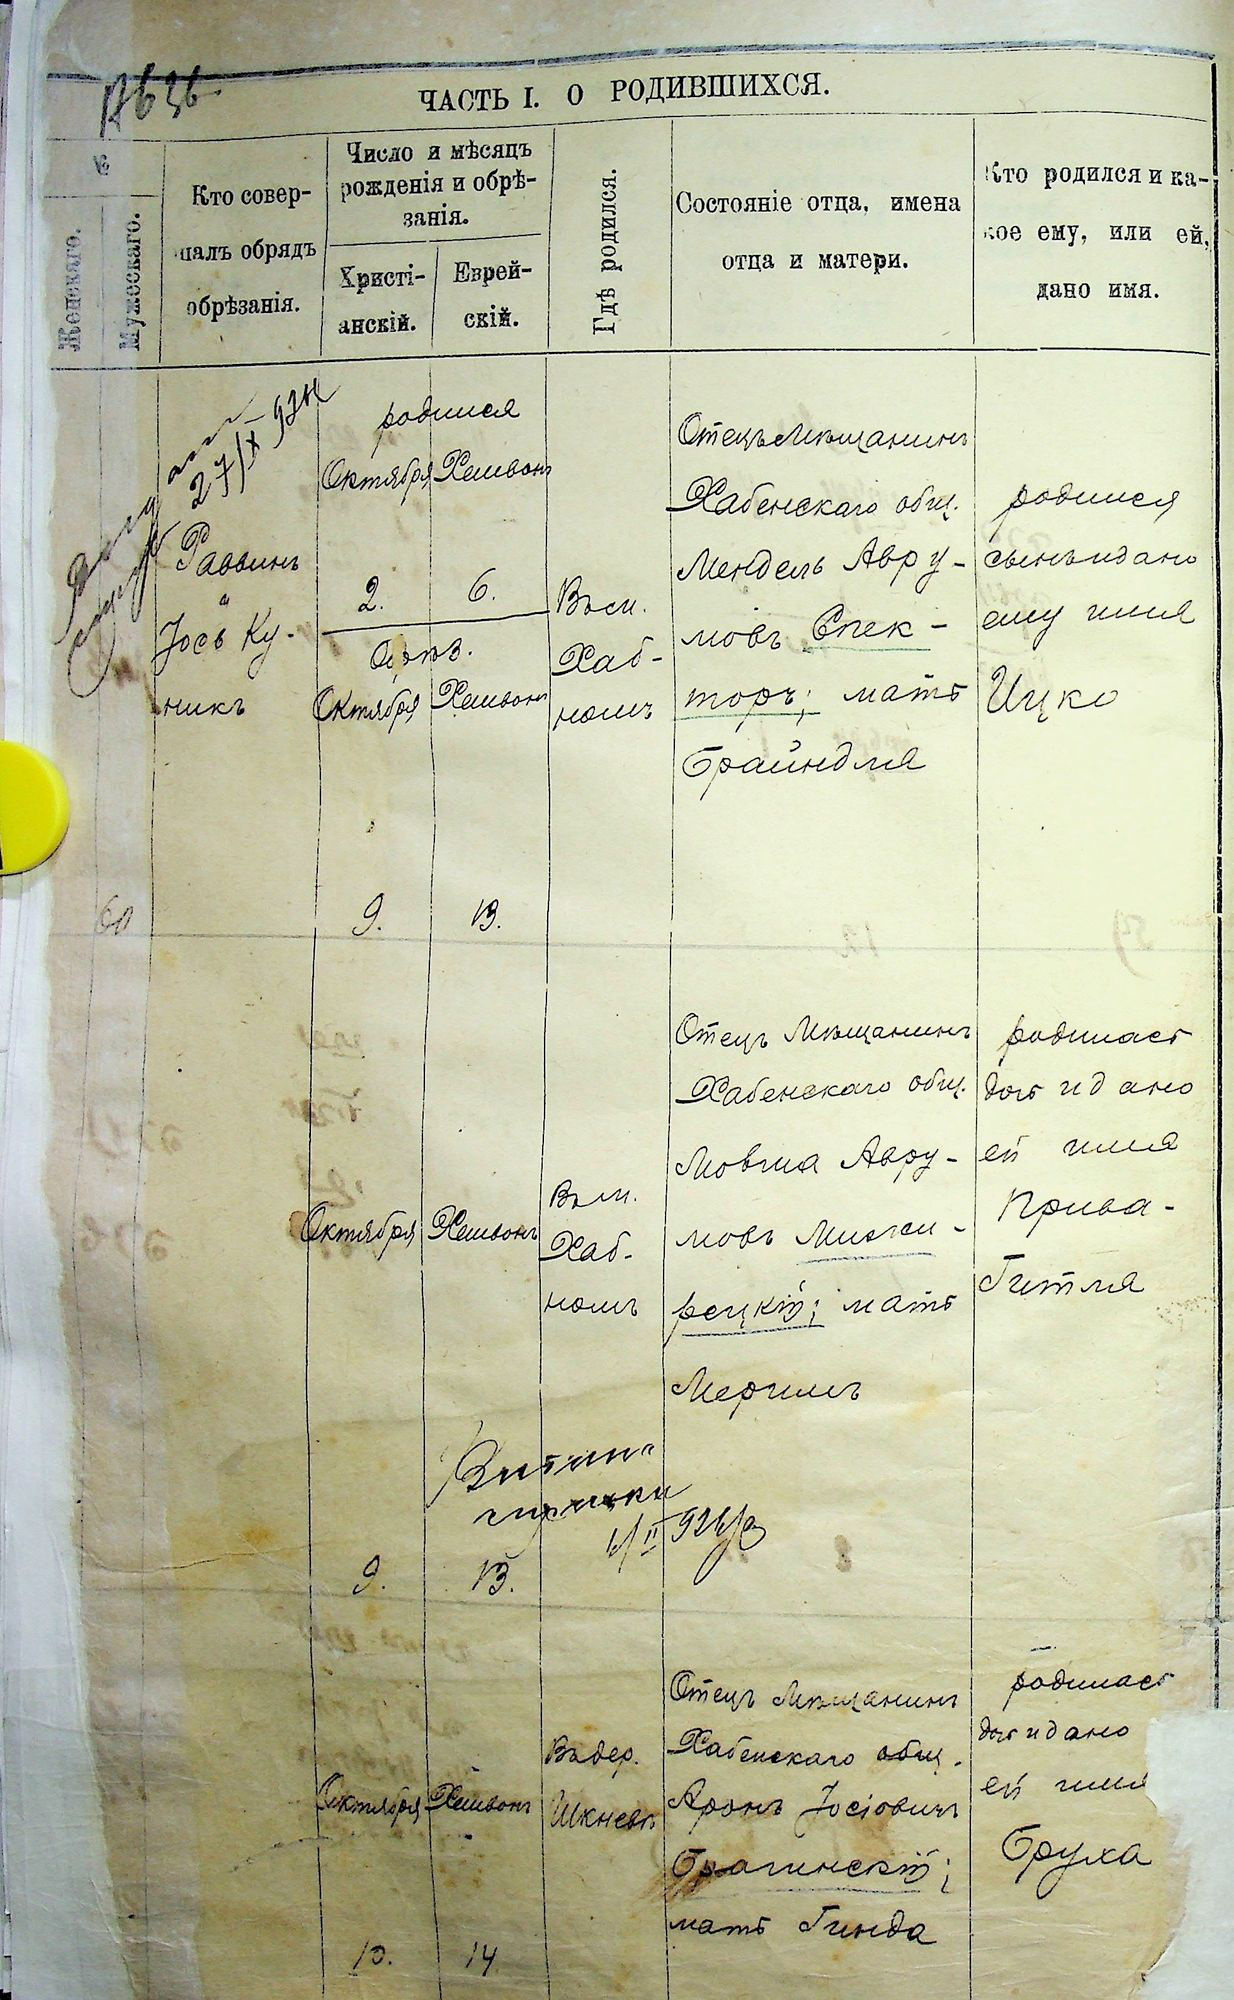 ЧАСТЬ I. О РОДИВШИХСЯ.
№
Женскаго.
Мужескаго.
Кто совер-
шалъ обрядъ
обрѣзанія.
Число и мѣсяцъ
рожденія и обрѣ-
занія.
Христі-
анскій.
Еврей-
скій.
Гдѣ родился.
Состояніе отца, имена
отца и матери.
Кто родился и ка-
кое ему, или ей,
дано имя.
60
Раввинъ
Іось Ку-
никъ
родился
Октября Хешвонъ
2. 6.
Обрѣз.
Октября Хешвонъ
9. 13.
Въ м.
Хаб-
номъ
Отецъ Мѣщанинъ
Хабенскаго общ.
Мендель Авру-
мовъ Спек-
торъ; мать
Брайндля
родился
сынъ и дано
ему имя
Ицко
Октября Хешвонъ
9. 13.
Въ м.
Хаб-
номъ
Отецъ Мѣщанинъ
Хабенскаго общ.
Мовша Авру-
мовъ Межи-
рецкій; мать
Меримъ
родилась
дочь и дано
ей имя
Прива-
Гитля
Октября Хешвонъ
10. 14
Въ дер.
Шкневѣ
Отецъ Мѣщанинъ
Хабенскаго общ.
Аронъ Іосіовичъ
Брагинскій;
мать Гинда
родилась
дочь и дано
ей имя
Бруха